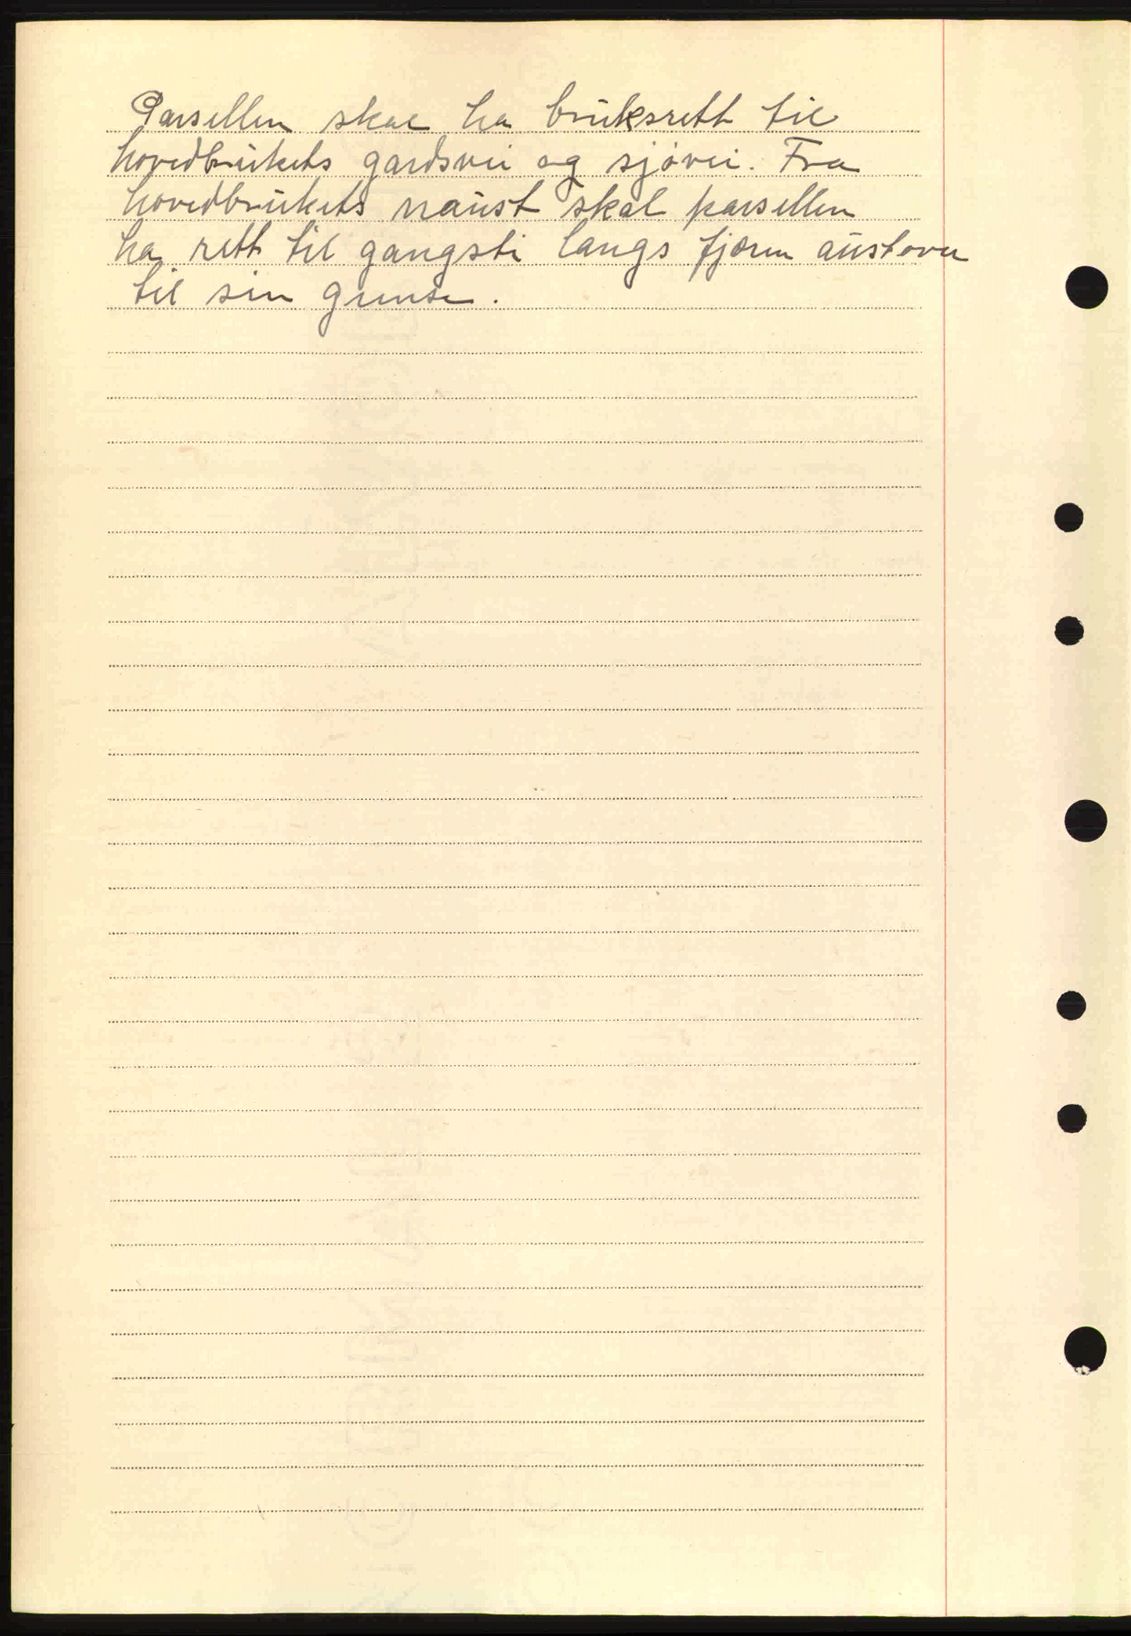 Parsellen skal ha bruksrett til
hovedbrukets gardsvei og sjøvei. Fra
hovedbrukets naust skal parsellen
ha rett til gangsti langs fjæren austover
til sin grense.